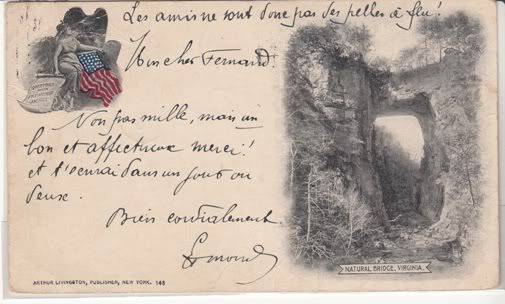 Les amis ne sont donc pas des pelles à feu!
Mon cher Fernand.
Non pas mille, mais un
bon et affectueux merci!
et t'écrirai dans un jour ou
deux.
Bien cordialement
Edmond
NATURAL BRIDGE, VIRGINIA.
ARTHUR LIVINGSTON, PUBLISHER, NEW YORK. 148